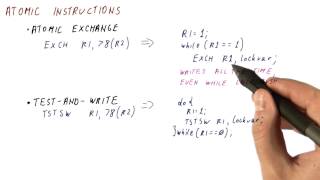 ATOMIC INSTRUCTIONS
• ATOMIC EXCHANGE
EXCH R1, 78(R2) ⇒
R1 = 1;
while (R1 == 1)
EXCH R1, lockvar;
WRITES ALL THE TIME,
EVEN WHILE
• TEST-AND-WRITE
TSTSW R1, 78(R2) ⇒
do {
R1 = 1;
TSTSW R1, lockvar;
} while (R1 == 0);